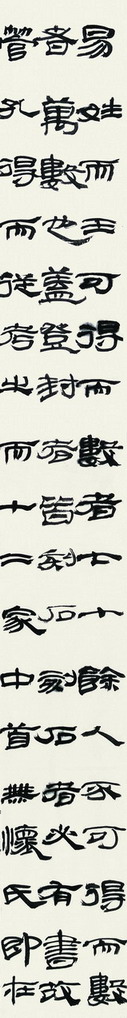 易姓而王可得而數者七十餘人不可得而數
者萬數也蓋登封者皆刻石刻石者必有書故
管孔得而從考之而十二家中首無懷氏即在